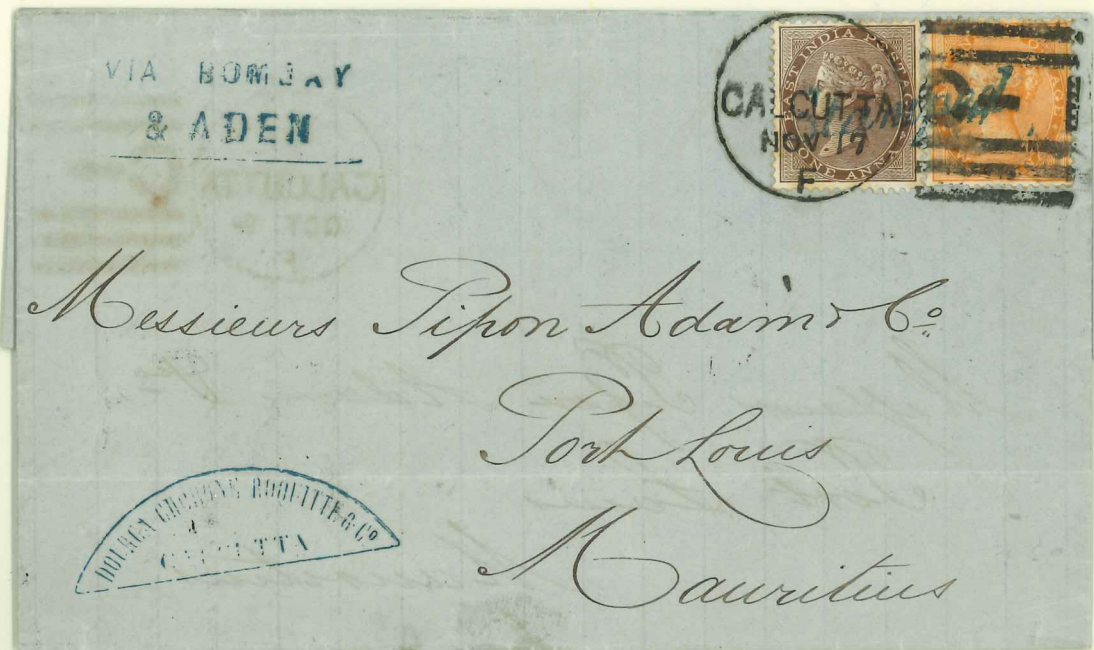 VIA BOMBAY
& ADEN
EAST INDIA POSTAGE
ONE ANNA
CALCUTTA
NOV. 17
F
Messieurs Pipon Adam & Co
Port Louis
Mauritius
DOURGA CHURONE ROQUITTE & Co
CALCUTTA
CALCUTTA
OCT. 9
F